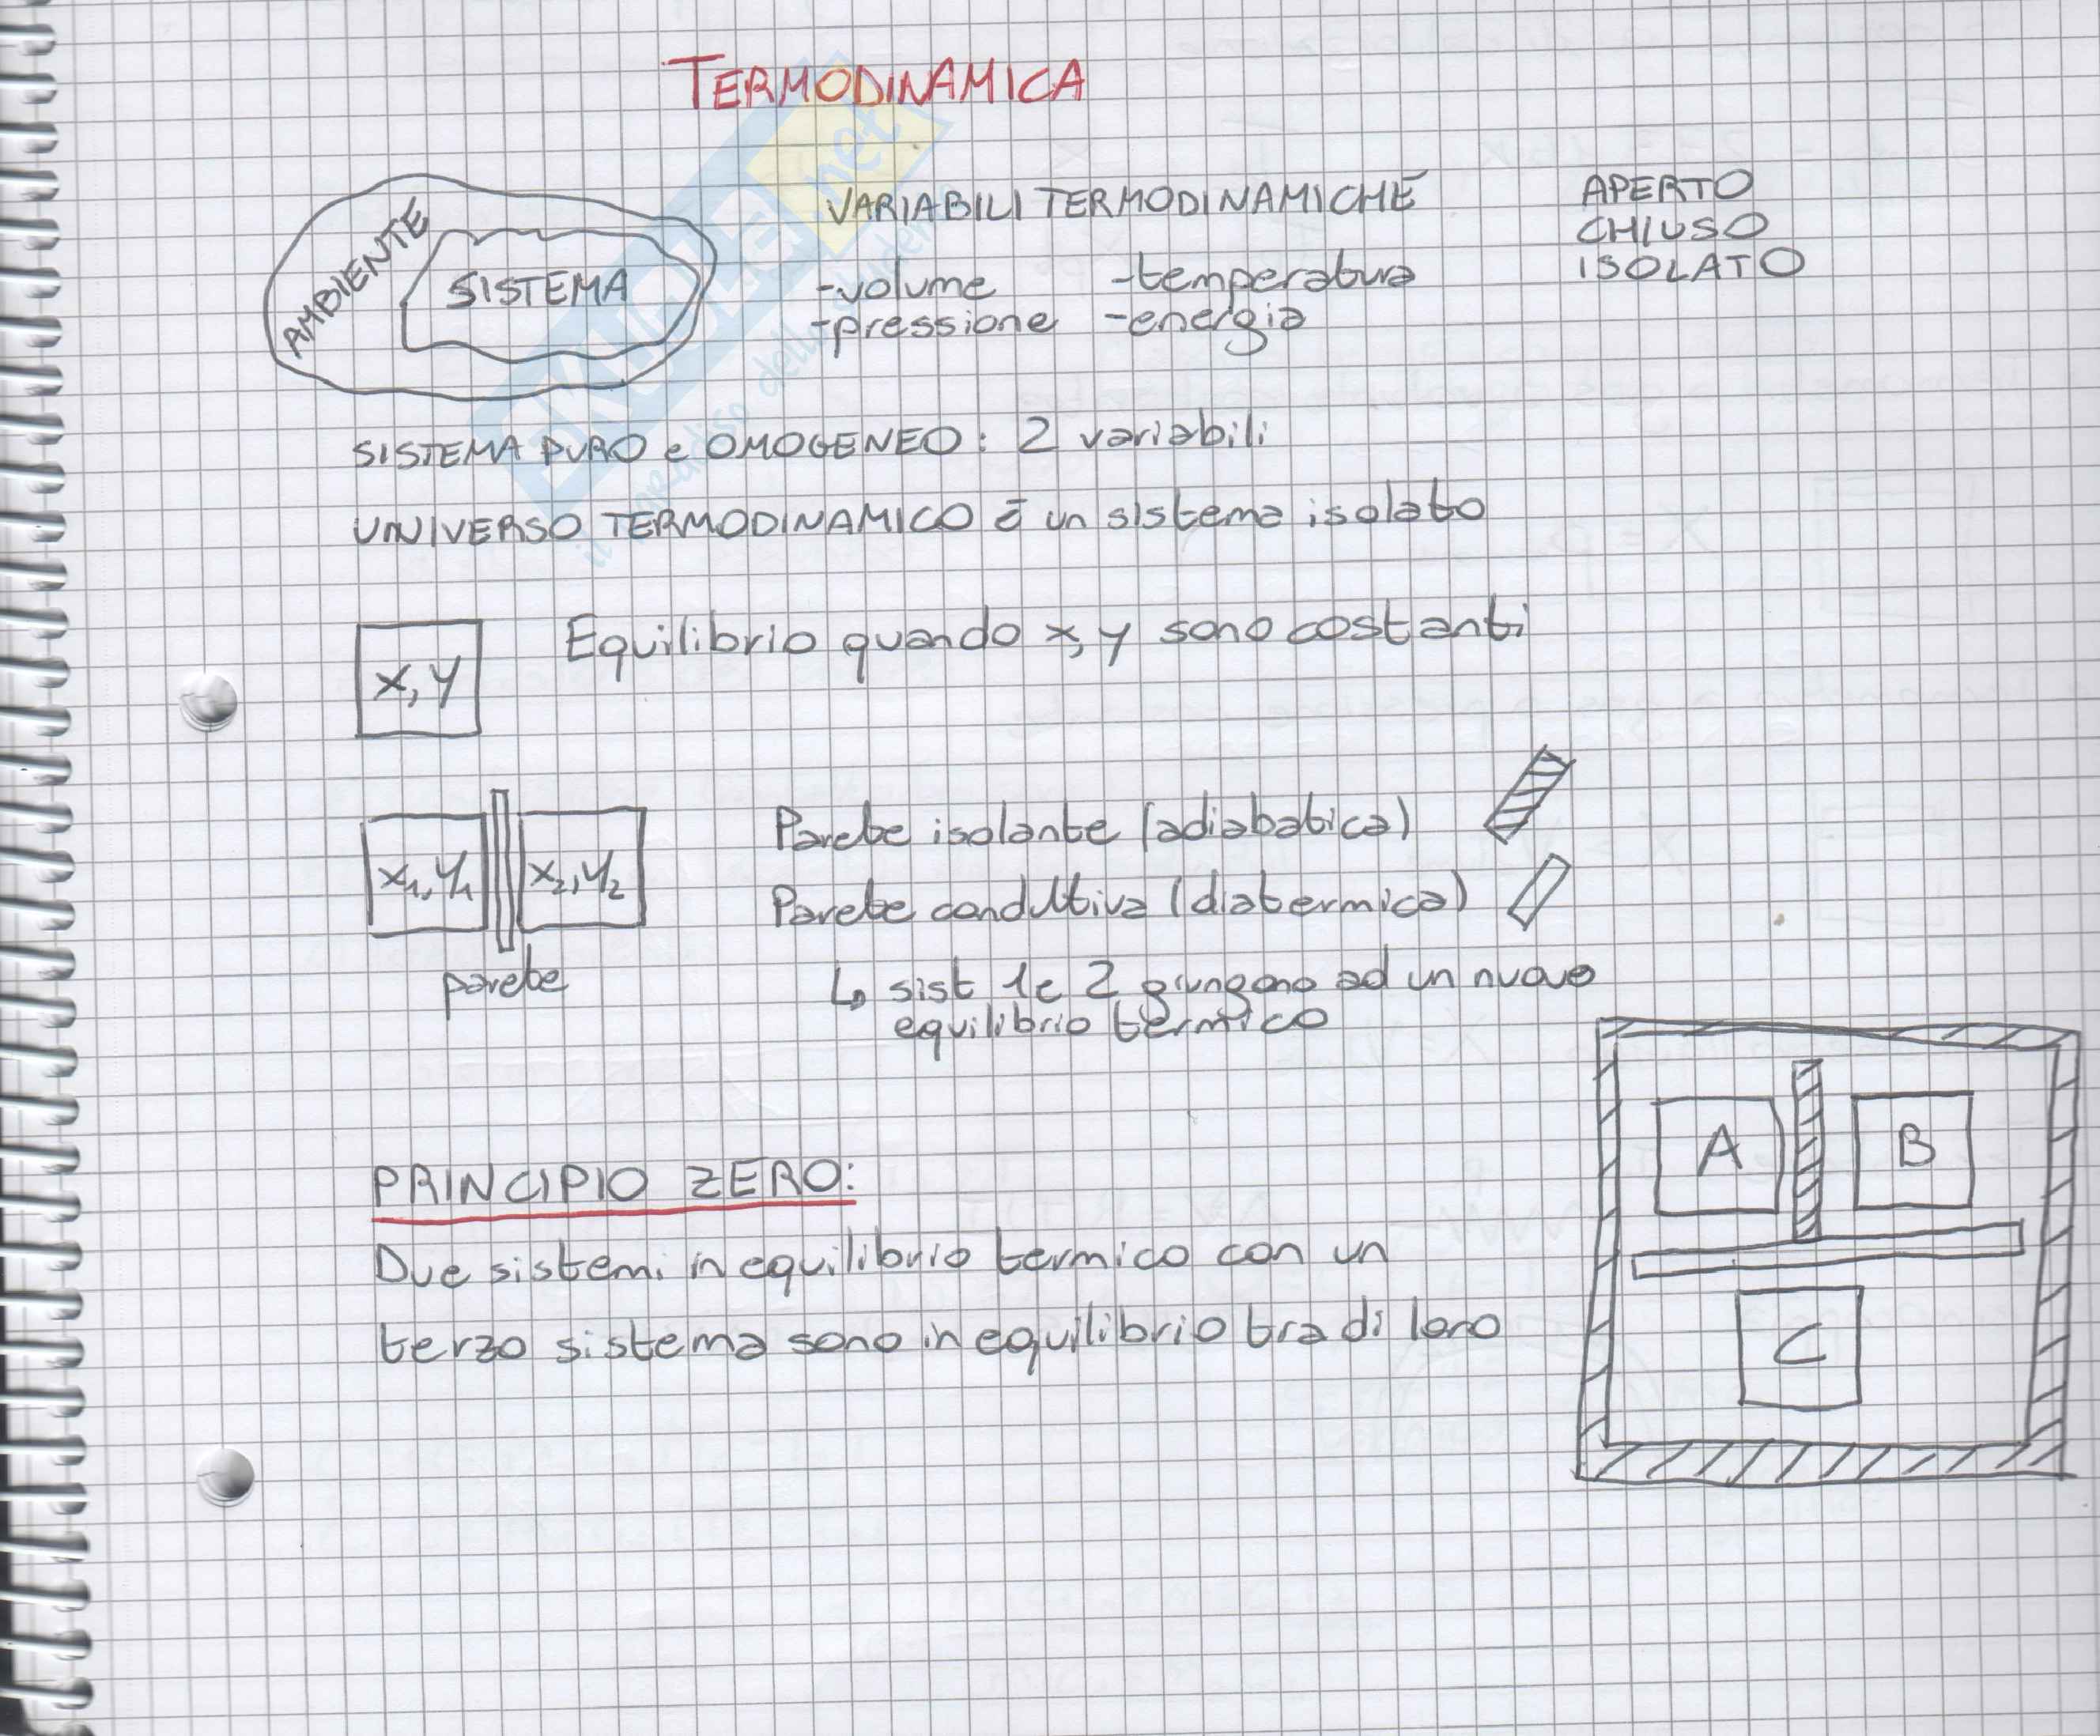 TERMODINAMICA
AMBIENTE
SISTEMA
VARIABILI TERMODINAMICHE
-volume -temperatura
-pressione -energia
APERTO
CHIUSO
ISOLATO
SISTEMA PURO e OMOGENEO: 2 variabili
UNIVERSO TERMODINAMICO è un sistema isolato
x, y
Equilibrio quando x, y sono costanti
x₁, y₁ x₂, y₂
parete
Parete isolante (adiabatica)
Parete conduttiva (diatermica)
↳ sist 1 e 2 giungono ad un nuovo
equilibrio termico
A B
C
PRINCIPIO ZERO:
Due sistemi in equilibrio termico con un
terzo sistema sono in equilibrio tra di loro
SKUOLA.net